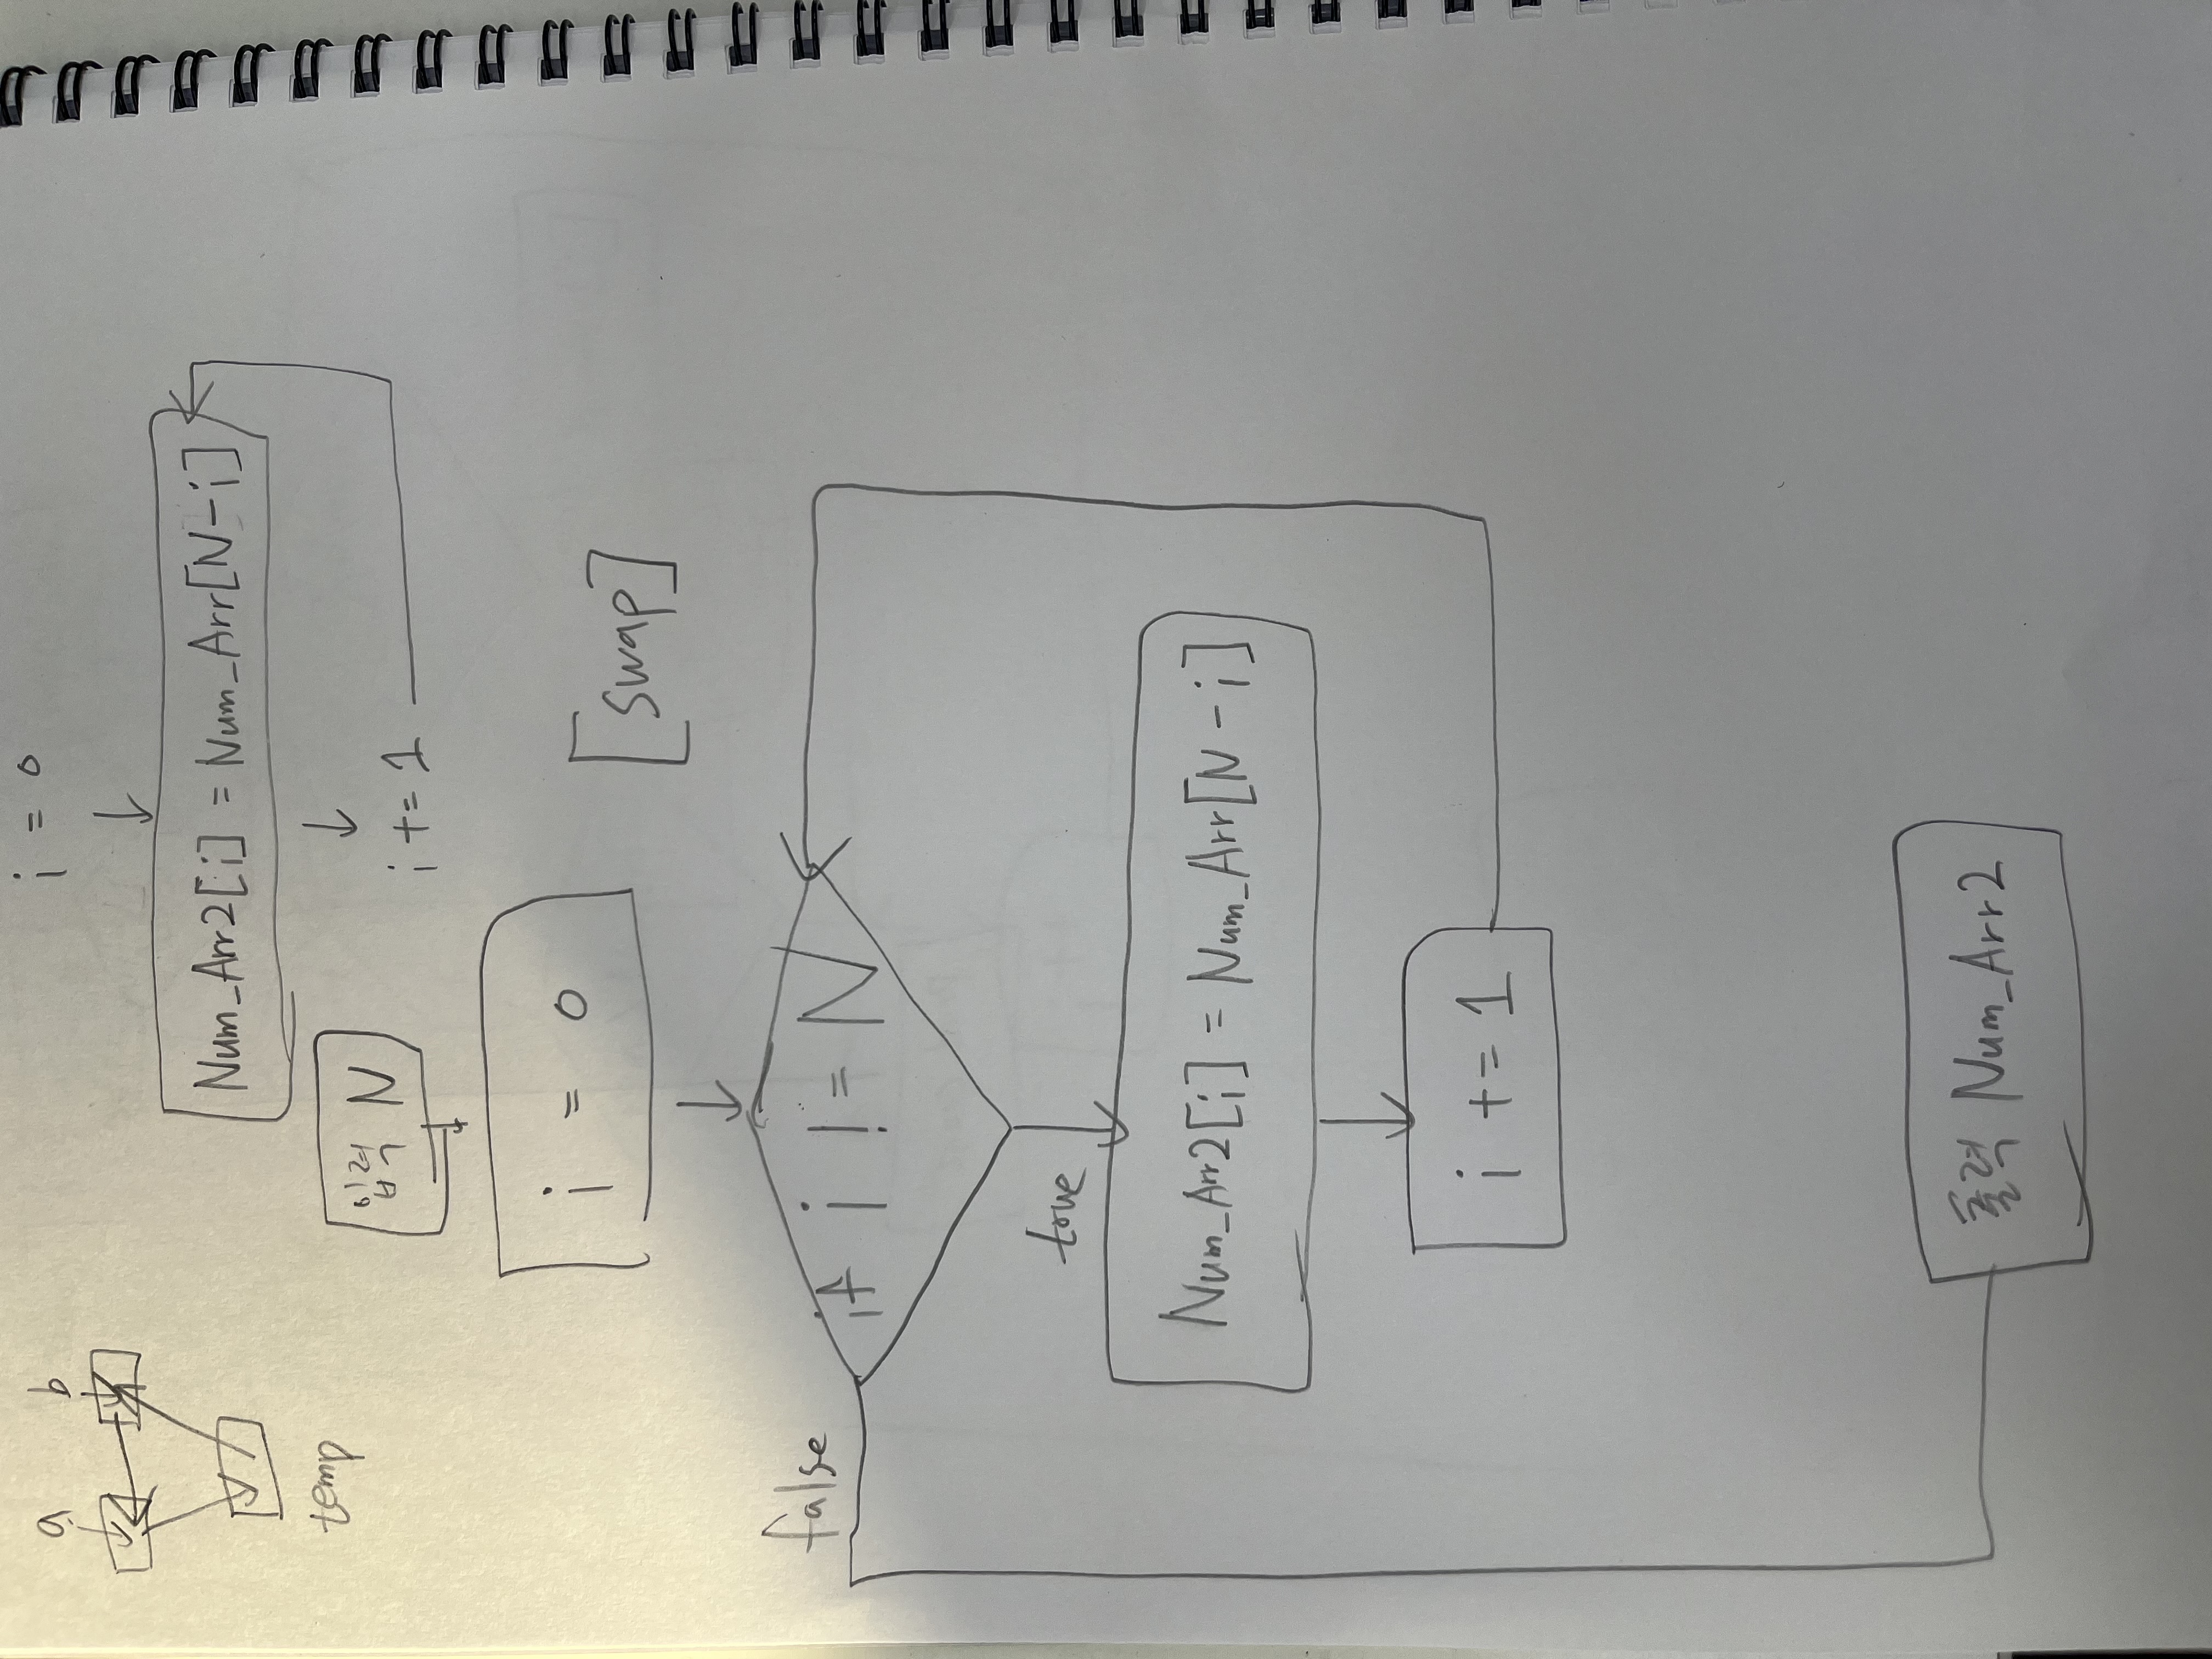 a b
temp
i = 0
Num_Arr2[i] = Num_Arr[N-i]
i += 1
입력 N
i = 0
[swap]
if i != N
false
true
Num_Arr2[i] = Num_Arr[N-i]
i += 1
출력 Num_Arr2